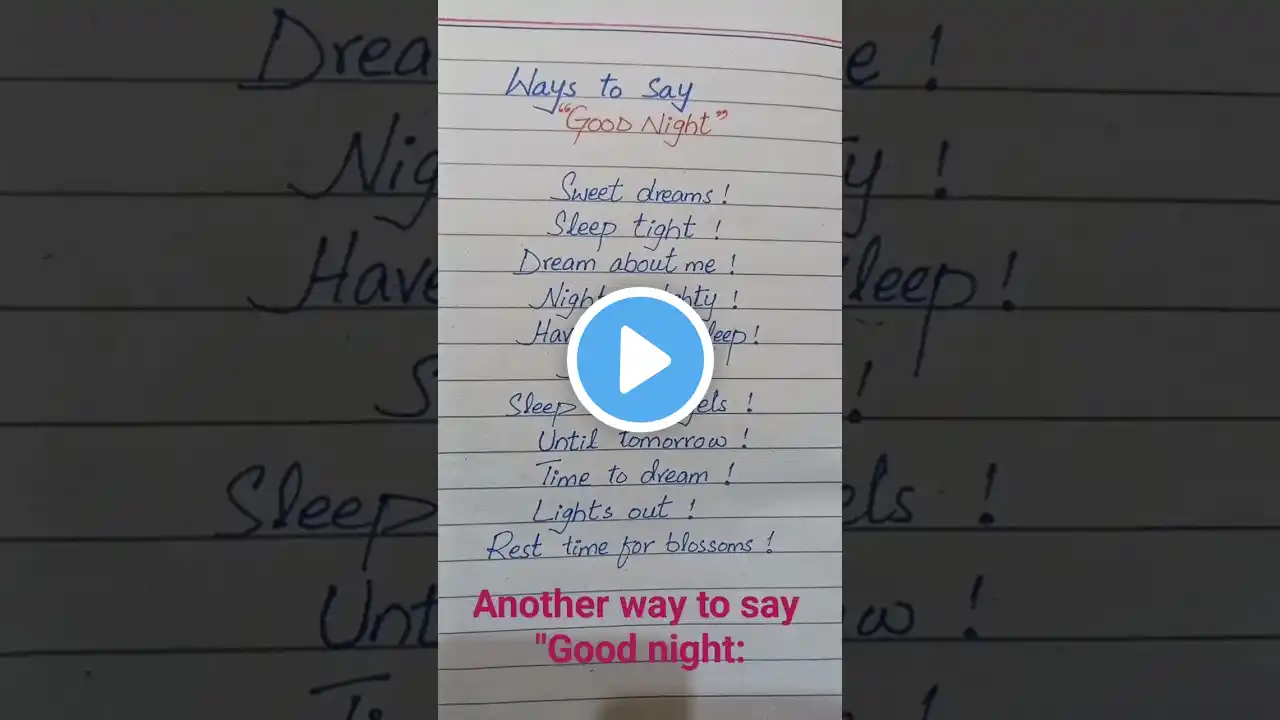 Ways to say
"GOOD Night"
Sweet dreams!
Sleep tight!
Dream about me!
Night
Have sleep!
Sleep
Until tomorrow!
Time to dream!
Lights out!
Rest time for blossoms!
Another way to say
"Good night: